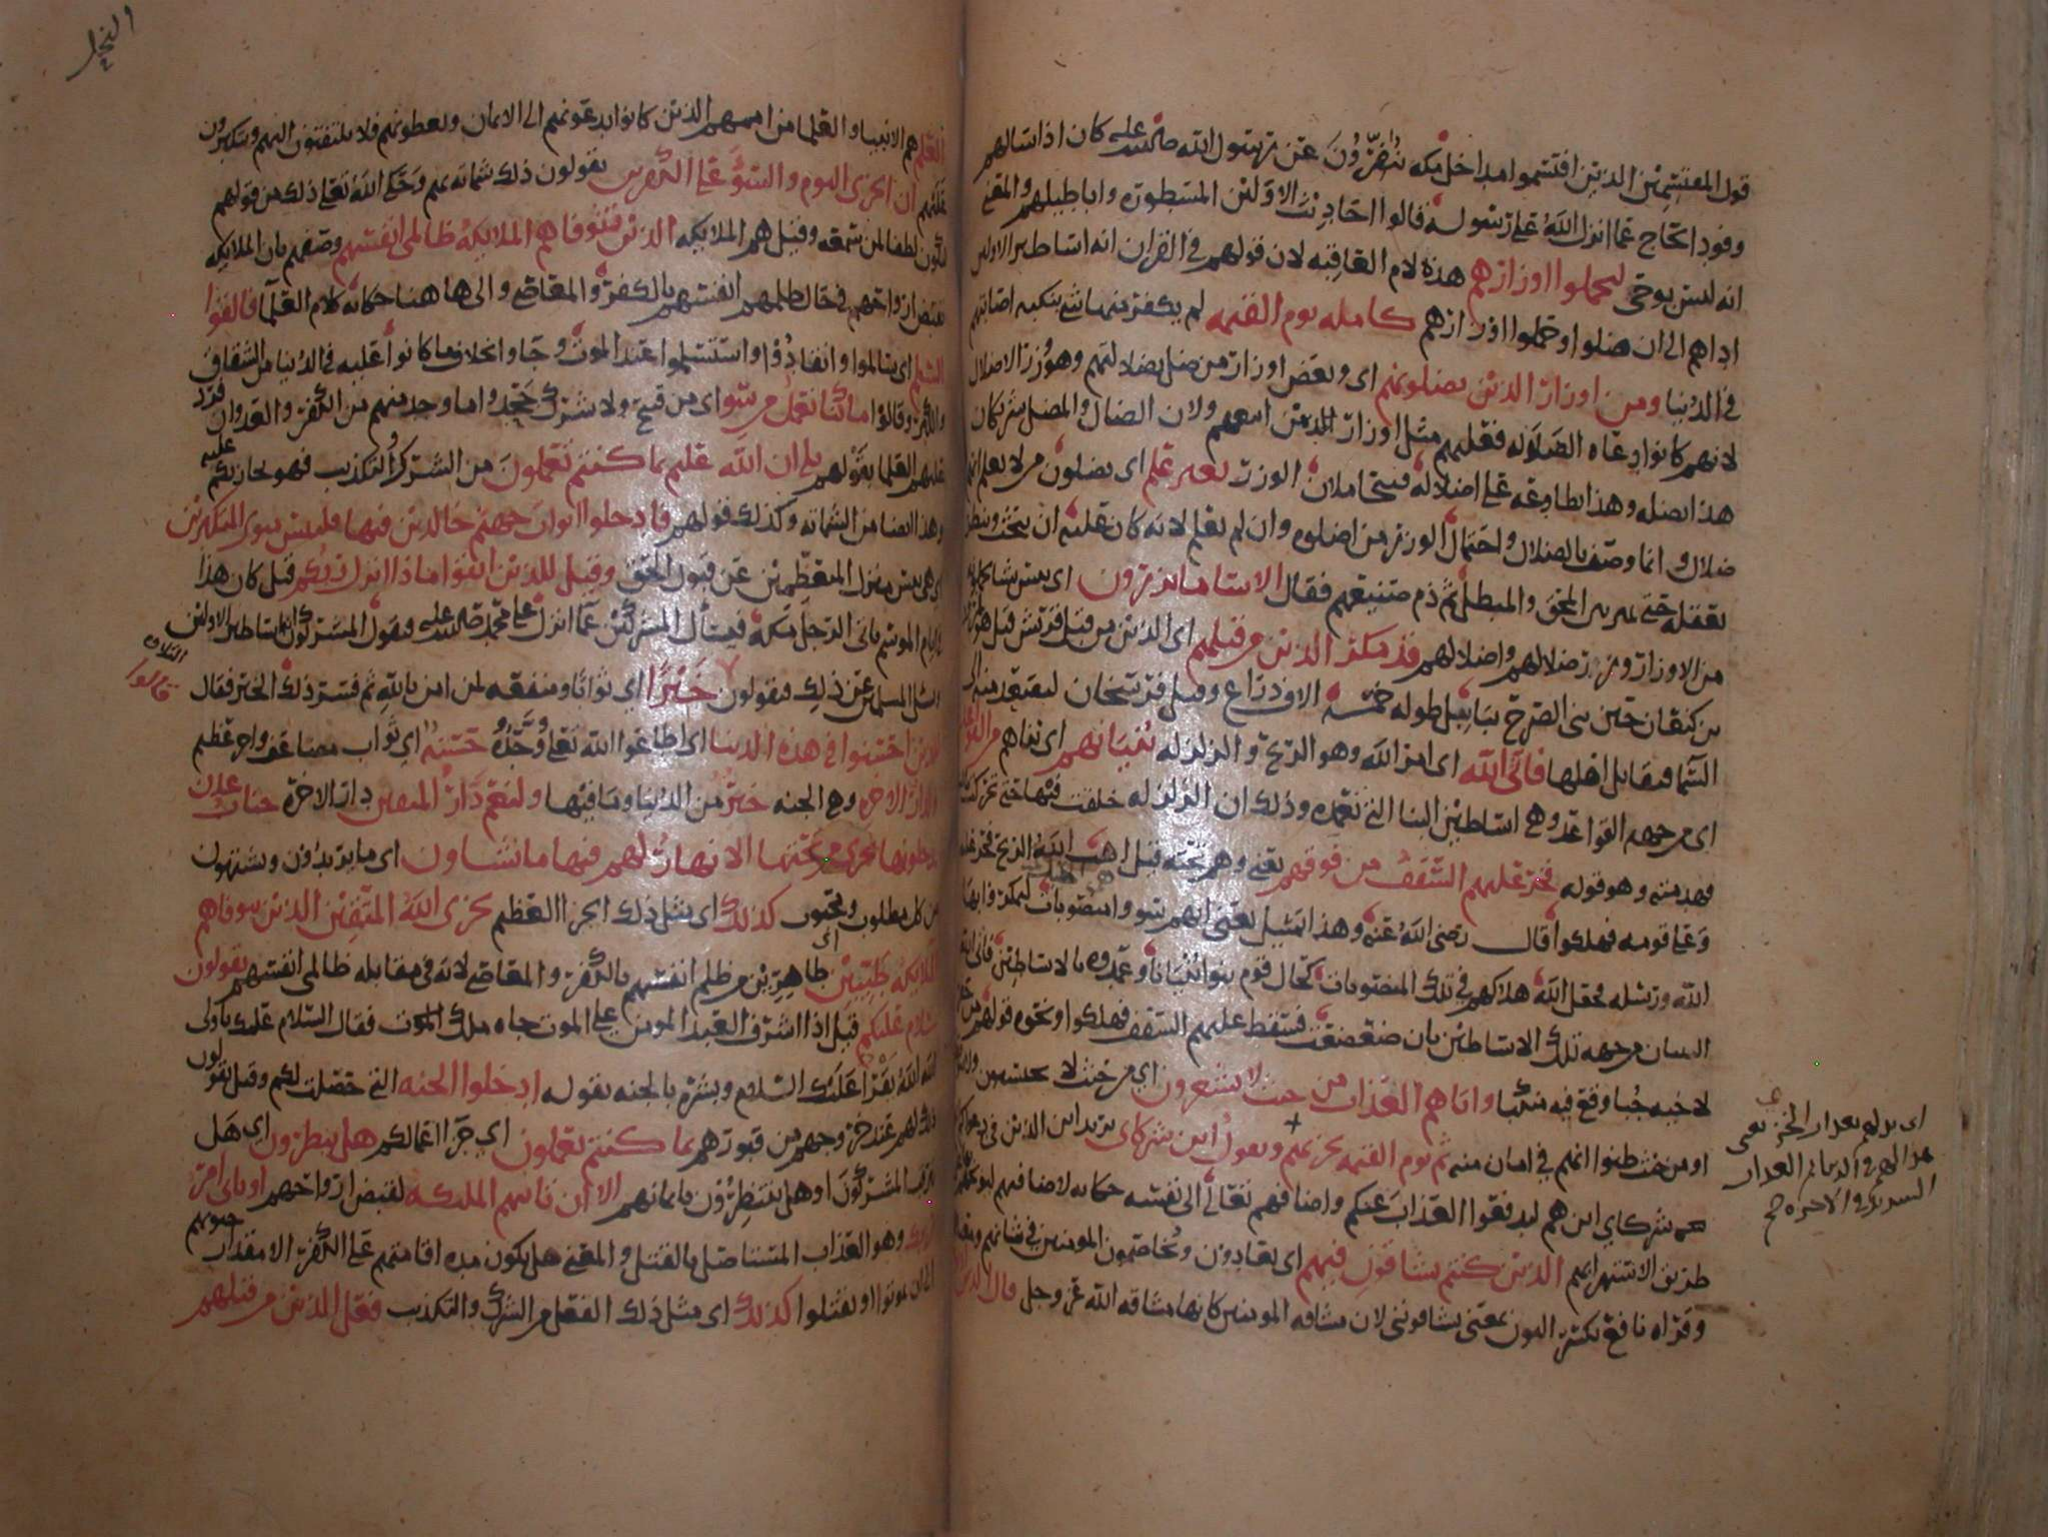 قول المقتسمين الذين اقتسموا مداخل مكه ينفرون عن رسول الله صلى الله عليه كان اذا سالهم
وفود الحاج عما انزل الله على رسوله قالوا احاديث الاولين المسطوره واباطيلهم والمعنى
انه ليس بوحي ليحملوا اوزارهم هذه لام العاقبه لان قولهم في القران انه اساطير الاولين
اداهم الى ان ضلوا وحملوا اوزارهم كامله يوم القيمه لم يكفر منها شي بنكبه اصابتهم
في الدنيا ومن اوزار الذين يضلونهم اي وبعض اوزار من ضل بضلالتهم وهو وزر الاضلال
لانهم كانوا دعاه الضلاله فعليهم مثل اوزار الذين اتبعهم ولان الضال والمضل شريكان
هذا يضله وهذا يطاوعه على اضلاله فيتحاملان الوزر بغير علم اي يضلون من لا يعلم انهم
ضلال وانما وصف بالضلال واحتمال الوزر من اضلوه وان لم يعلم لانه كان عليه ان يبحث وينظر
بعقله حتى يميز بين المحق والمبطل ثم ذم صنيعهم فقال الا سا ما يزرون اي بئس
من الاوزار وزر ضلالهم واضلالهم قد مكر الذين من قبلهم اي الذين من قبل قريش قيل هو
بن كنعان حين بنى الصرح ببابل طوله خمسه الاف ذراع وقيل فرسخان ليصعد منه الى
السما فيقاتل اهلها فاتى الله اي امر الله وهو الريح والزلزله بنيانهم اي بناهم من القواعد
اي من جهه القواعد وهي اساطين البنا التي تعمده وذلك ان الزلزله خلقت فيها حتى تحركت
فهدمته وهو قوله فخر عليهم السقف من فوقهم يعني وهم تحته قيل اهب الله الريح فخر عليه
وعلى قومه فهلكوا قال رضي الله عنه وهذا تمثيل يعني انهم سووا منصوبات ليمكروا بها
الله ورسله فجعل الله هلاكهم في تلك المنصوبات كحال قوم بنوا بنيانا وعمدوه بالاساطين فاتى
البنيان من جهه تلك الاساطين بان ضعضعت فسقط عليهم السقف فهلكوا ونحوه قولهم من حفر
لاخيه جبا وقع فيه منكبا واتاهم العذاب من حيث لا يشعرون اي من حيث لا يحتسبون
او من حيث ظنوا انهم في امان منه ثم يوم القيمه يخزيهم ويقول اين شركاي يريد اين الذين في دعواكم
هم شركاي اين هم ليدفعوا العذاب عنكم واضافهم تعالى الى نفسه حكايه لاضافتهم ليوبخهم
طريق الاستهزا بهم الذين كنتم تشاقون فيهم اي تعادون وتخاصمون المومنين في شانهم
وقراه نافع بكسر النون بمعنى تشاقونني لان مشاقه المومنين كانها مشاقه الله عز وجل قال الذين
اي يذلهم بعذاب الخزي يعني
هذا لهم في الدنيا ثم العذاب
الشديد في الاخره صح
النحل
العلم هم الانبيا والعلما من اممهم الذين كانوا يدعونهم الى الايمان ويعظونهم فلا يلتفتون اليهم ويتكبرون
عليهم ان الخزي اليوم والسو على الكفرين يقولون ذلك شماته بهم وحكى الله تعالى ذلك من قولهم
ليكون لطفا لمن سمعه وقيل هم الملايكه الذين تتوفاهم الملايكه ظالمي انفسهم وصفهم بان الملايكه
تقبض ارواحهم في حال ظلمهم انفسهم بالكفر والمعاصي والى هاهنا حكايه كلام العلما فالقوا
السلم اي سالموا وانقادوا واستسلموا عند الموت وجاوا بخلاف ما كانوا عليه في الدنيا من الشقاق
والكبر وقالوا ما كنا نعمل من سو اي من قبيح ولا شرك جحدوا ما وجد منهم من الكفر والعدوان فرد
عليهم العلما بقولهم بلى ان الله عليم بما كنتم تعملون من الشرك والتكذيب فهو يجازيكم عليه
وهذا ايضا من الشماته وكذلك قولهم فادخلوا ابواب جهنم خالدين فيها فلبيس مثوى المتكبرين
اي هي بيس منزل المتعظمين عن قبول الحق وقيل للذين اتقوا ماذا انزل ربكم قيل كان هذا
في ايام الموسم ياتي الرجل مكه فيسال المشركين عما انزل على محمد صلى الله عليه فيقول المشركون اساطير الاولين
ويسال المسلمين عن ذلك فيقولون خيرا اي ثوابا ومنفعه لمن امن بالله ثم فسر ذلك الخير فقال
التلاوه
قالوا
للذين احسنوا في هذه الدنيا اي اطاعوا الله تعالى ووحدوه حسنه اي ثواب مضاعف واجر عظيم
ولدار الاخره وهي الجنه خير من الدنيا وما فيها ولنعم دار المتقين دار الاخره جنات عدن
يدخلونها تجري من تحتها الانهار لهم فيها ما يشاون اي ما يريدون ويشتهون
من كل مطلوب ومحبوب كذلك اي مثل ذلك الجزا العظيم يجزي الله المتقين الذين تتوفاهم
الملايكه طيبين اي طاهرين من ظلم انفسهم بالكفر والمعاصي لانه في مقابله ظالمي انفسهم يقولون
سلام عليكم قيل اذا اشرف العبد المومن على الموت جاه ملك الموت فقال السلام عليك يا ولي
الله الله يقرا عليك السلام وبشره بالجنه بقوله ادخلوا الجنه التي حصلت لكم وقيل يقولون
ذلك لهم عند خروجهم من قبورهم بما كنتم تعملون اي جزا اعمالكم هل ينظرون اي هل
المشركون او هل ينتظرون بايمانهم الا ان تاتيهم الملئكه لقبض ارواحهم او ياتي امر
ربك وهو العذاب المستاصل بالقتل والمعنى هل يكون مده اقامتهم على الكفر الا مقدار حيوتهم
الى ان يموتوا او يقتلوا كذلك اي مثل ذلك الفعل من الشرك والتكذيب فعل الذين من قبلهم